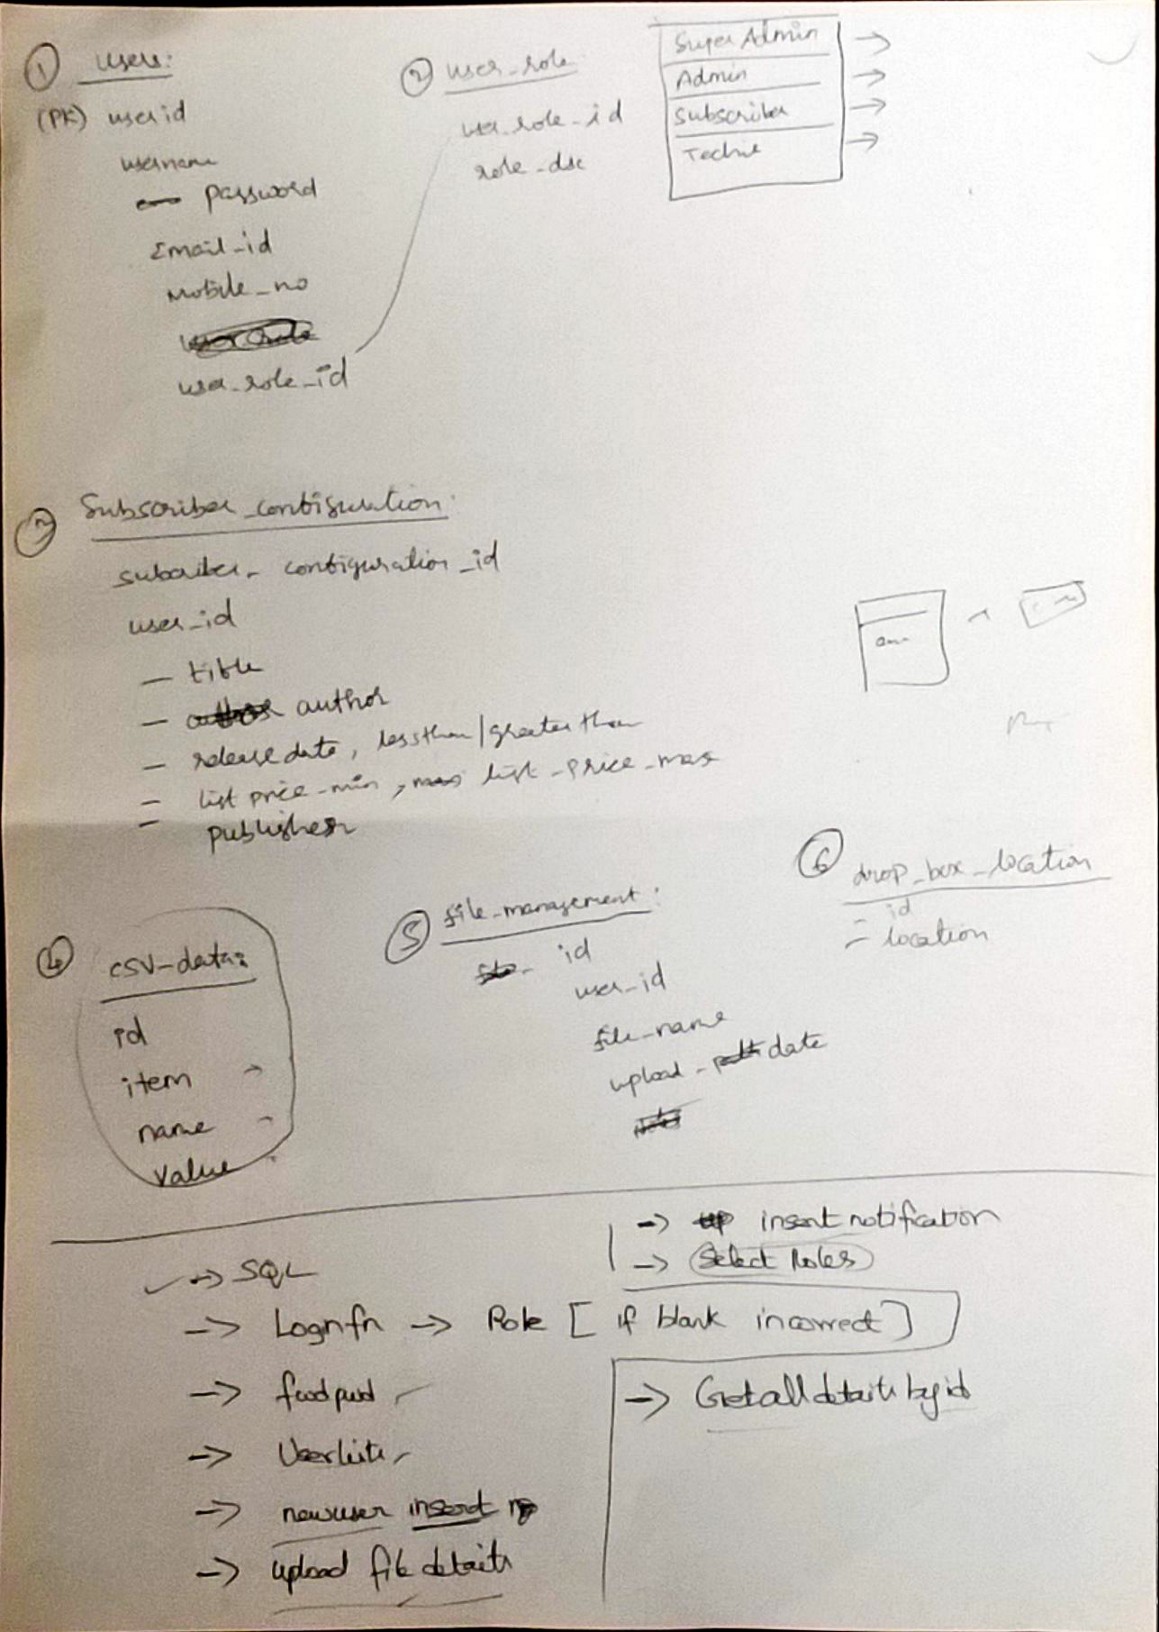 ① Users:
(PK) userid
username
password
Email_id
Mobile_no
user_role_id
② user_role
user_role_id
role_dsc
Super Admin →
Admin →
Subscriber →
Techie →
③ Subscriber_configuration:
subcriber_ configuration_id
user_id
— title
— author
— release date, lessthan/greater than
— list price_min, list_price_max
— publisher
④ csv-data:
id
item
name
value
⑤ file_management:
id
user_id
file_name
upload_date
⑥ drop_box_location
— id
— location
→ SQL
→ Loginfn → Role [ if blank incorrect ]
→ 
→ Userlist
→ newuser insert
→ upload file details
→ insert notification
→ Select Roles
→ Get all details by id